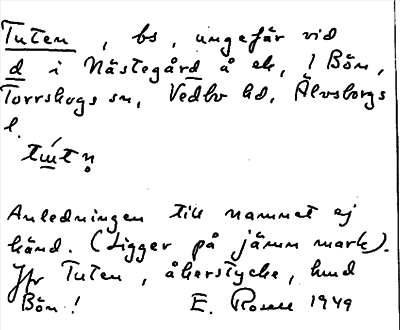 Tuten, bs, ungefär vid
d i Nästegård å ek, 1 Bön,
Torrskogs sn, Vedbo hd, Älvsborgs
l.
Anledningen till namnet ej
känd. (Ligger på jämn mark).
Jfr Tuten, åkerstycke, hmd
Bön!  E. Rosell 1949